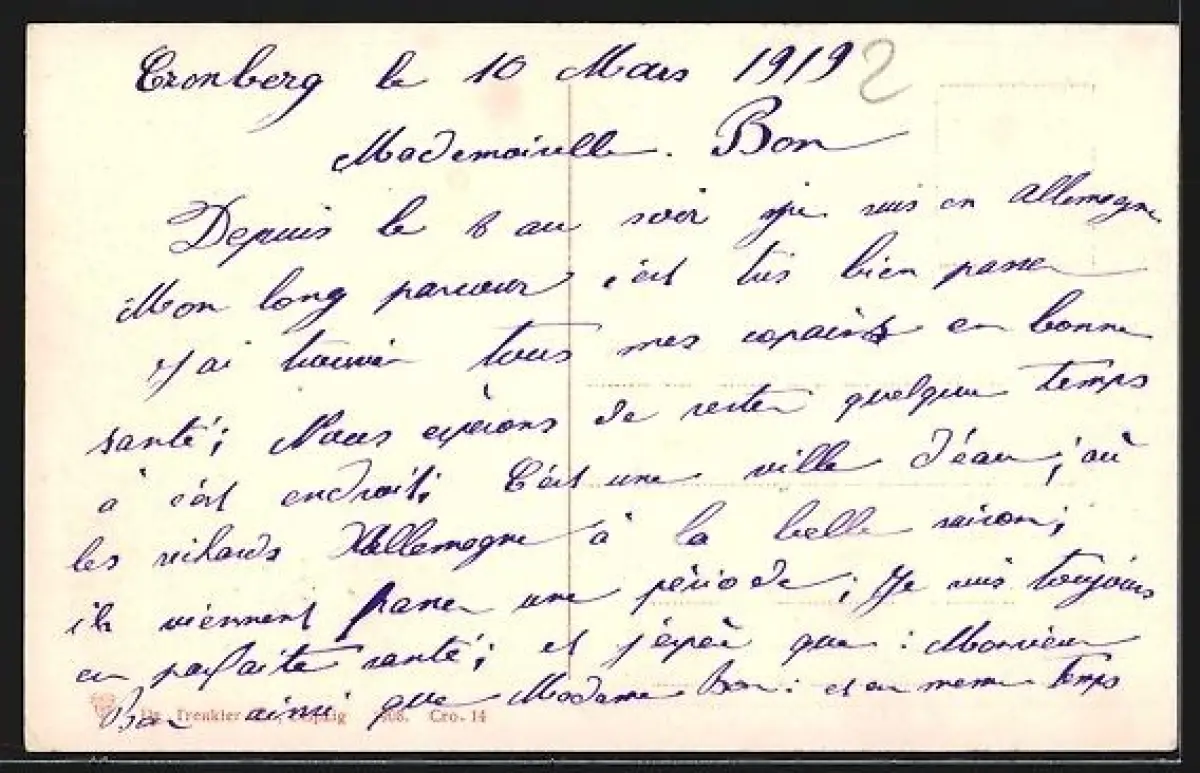 Cronberg le 10 Mars 1919
2
Mademoiselle. Bon
Depuis le 8 au soir je suis en Allemagne
Mon long parcour c'est très bien passer
j'ai trouvér tous mes copains en bonne
santé; Nous espérons de rester quelque temps
à cèt endroit; C'est une ville d'éau; où
les richards Allemagne à la belle saison;
ils viennent passer une période; Je suis toujours
en parfaite santé; et j'éspér que: Monsieur
Bon ainsi que Madame Bon: et en meme temps
Dr. Trenkler Leipzig 1908. Cro. 14